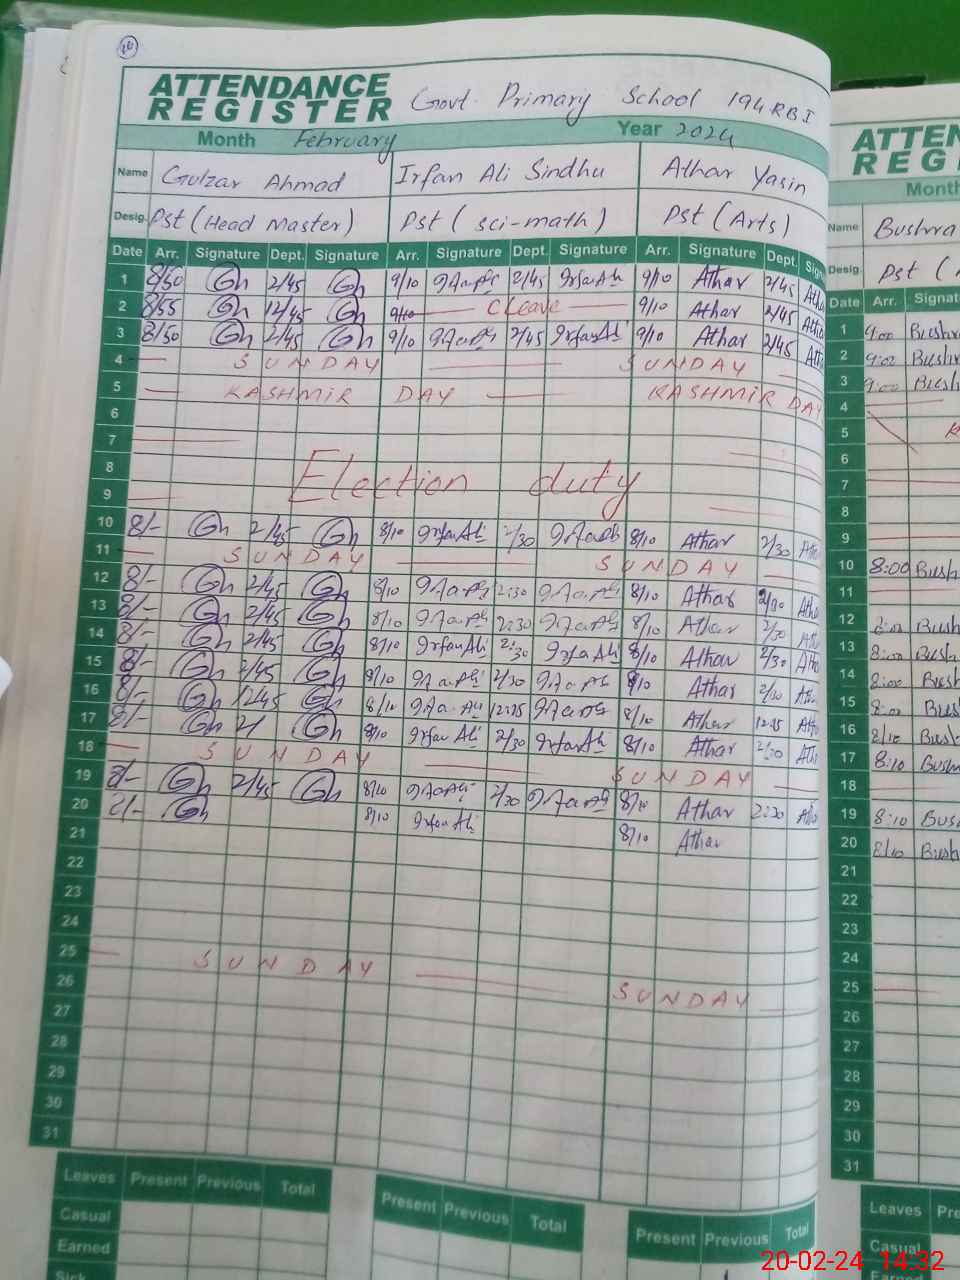 ATTENDANCE
REGISTER
Govt. Primary School 194 RBI
Month February Year 2024
Name Gulzar Ahmad Irfan Ali Sindhu Athar Yasin
Desig. Pst (Head Master) Pst (sci-math) Pst (Arts)
Date Arr. Signature Dept. Signature Arr. Signature Dept. Signature Arr. Signature Dept. Sign
1 8/50 Gh 2/45 Gh 9/10 2/45 Irfan Ali 9/10 Athar 2/45 Atha
2 8/55 Gh 12/45 Gh 9/10 C Leave 9/10 Athar 2/45
3 8/50 Gh 2/45 Gh 9/10 2/45 Irfan Ali 9/10 Athar 2/45
4 SUNDAY SUNDAY
5 KASHMIR DAY KASHMIR DAY
6
7
8 Election duty
9
10 8/- Gh 2/45 Gh 8/10 Irfan Ali 2/30 8/10 Athar 2/30 Ath
11 SUNDAY SUNDAY
12 8/- Gh 2/45 Gh 8/10 2:30 8/10 Athar 2/30 Atha
13 8/- Gh 2/45 Gh 8/10 2:30 8/10 Athar 2/30 Ath
14 8/- Gh 2/45 Gh 8/10 Irfan Ali 2:30 Irfan Ali 8/10 Athar 2/30 Atha
15 8/- Gh 2/45 Gh 8/10 2/30 8/10 Athar 2/30 Ath
16 8/- Gh 12/45 Gh 8/10 12:15 8/10 Athar 12:15 Atha
17 8/- Gh 2/ Gh 8/10 Irfan Ali 2/30 Irfan Ali 8/10 Athar 2/30 Ath
18 SUNDAY SUNDAY
19 8/- Gh 2/45 Gh 8/10 2/30 8/10 Athar 2:20
20 8/- Gh 8/10 Irfan Ali 8/10 Athar
21
22
23
24
25 SUNDAY SUNDAY
26
27
28
29
30
31
Leaves Present Previous Total Present Previous Total Present Previous Total
Casual
Earned
Sick
ATTEN
REG
Month
Name Bushra
Desig. Pst
Date Arr. Signat
1 9:00 Bushra
2 9:00 Bushr
3 9:00 Bush
4
5 K
6
7
8
9
10 8:00 Bush
11
12 8:00 Bush
13 8:00 Bush
14 8:00 Bush
15 8:00 Bus
16 8/10 Bush
17 8:10 Bush
18
19 8:10 Bus
20 8/10 Bush
21
22
23
24
25
26
27
28
29
30
31
Leaves Pre
Casual
20-02-24 14:32